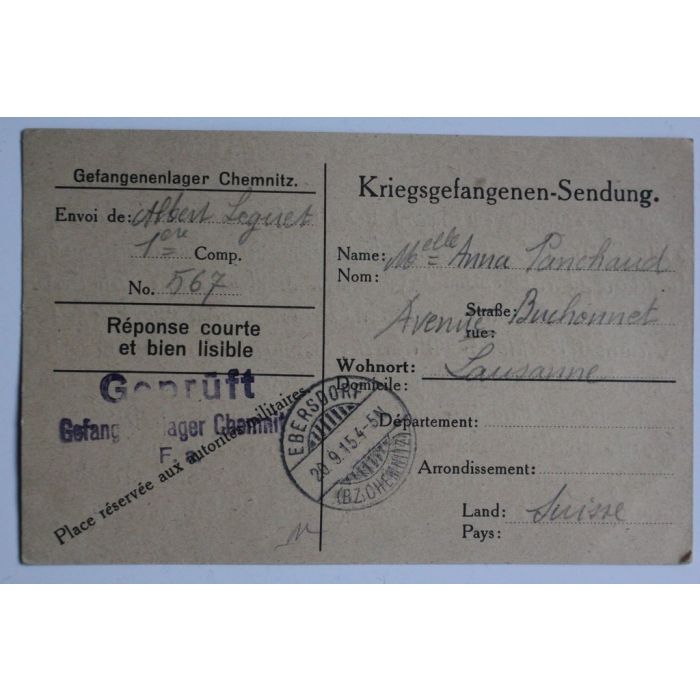 Gefangenenlager Chemnitz.
Envoi de: Albert Leguet
1ère Comp.
No. 567
Réponse courte
et bien lisible
Geprüft
Gefang lager Chemnitz
F. a.
Place réservée aux autorités militaires
EBERSDORF
20.9.15.4-5N
(BZ.CHEMNITZ)
Kriegsgefangenen-Sendung.
Name: Melle Anna Panchaud
Nom:
Straße: Avenue Buchonnet
rue:
Wohnort: Lausanne
Domicile:
Département:
Arrondissement:
Land: Suisse
Pays: